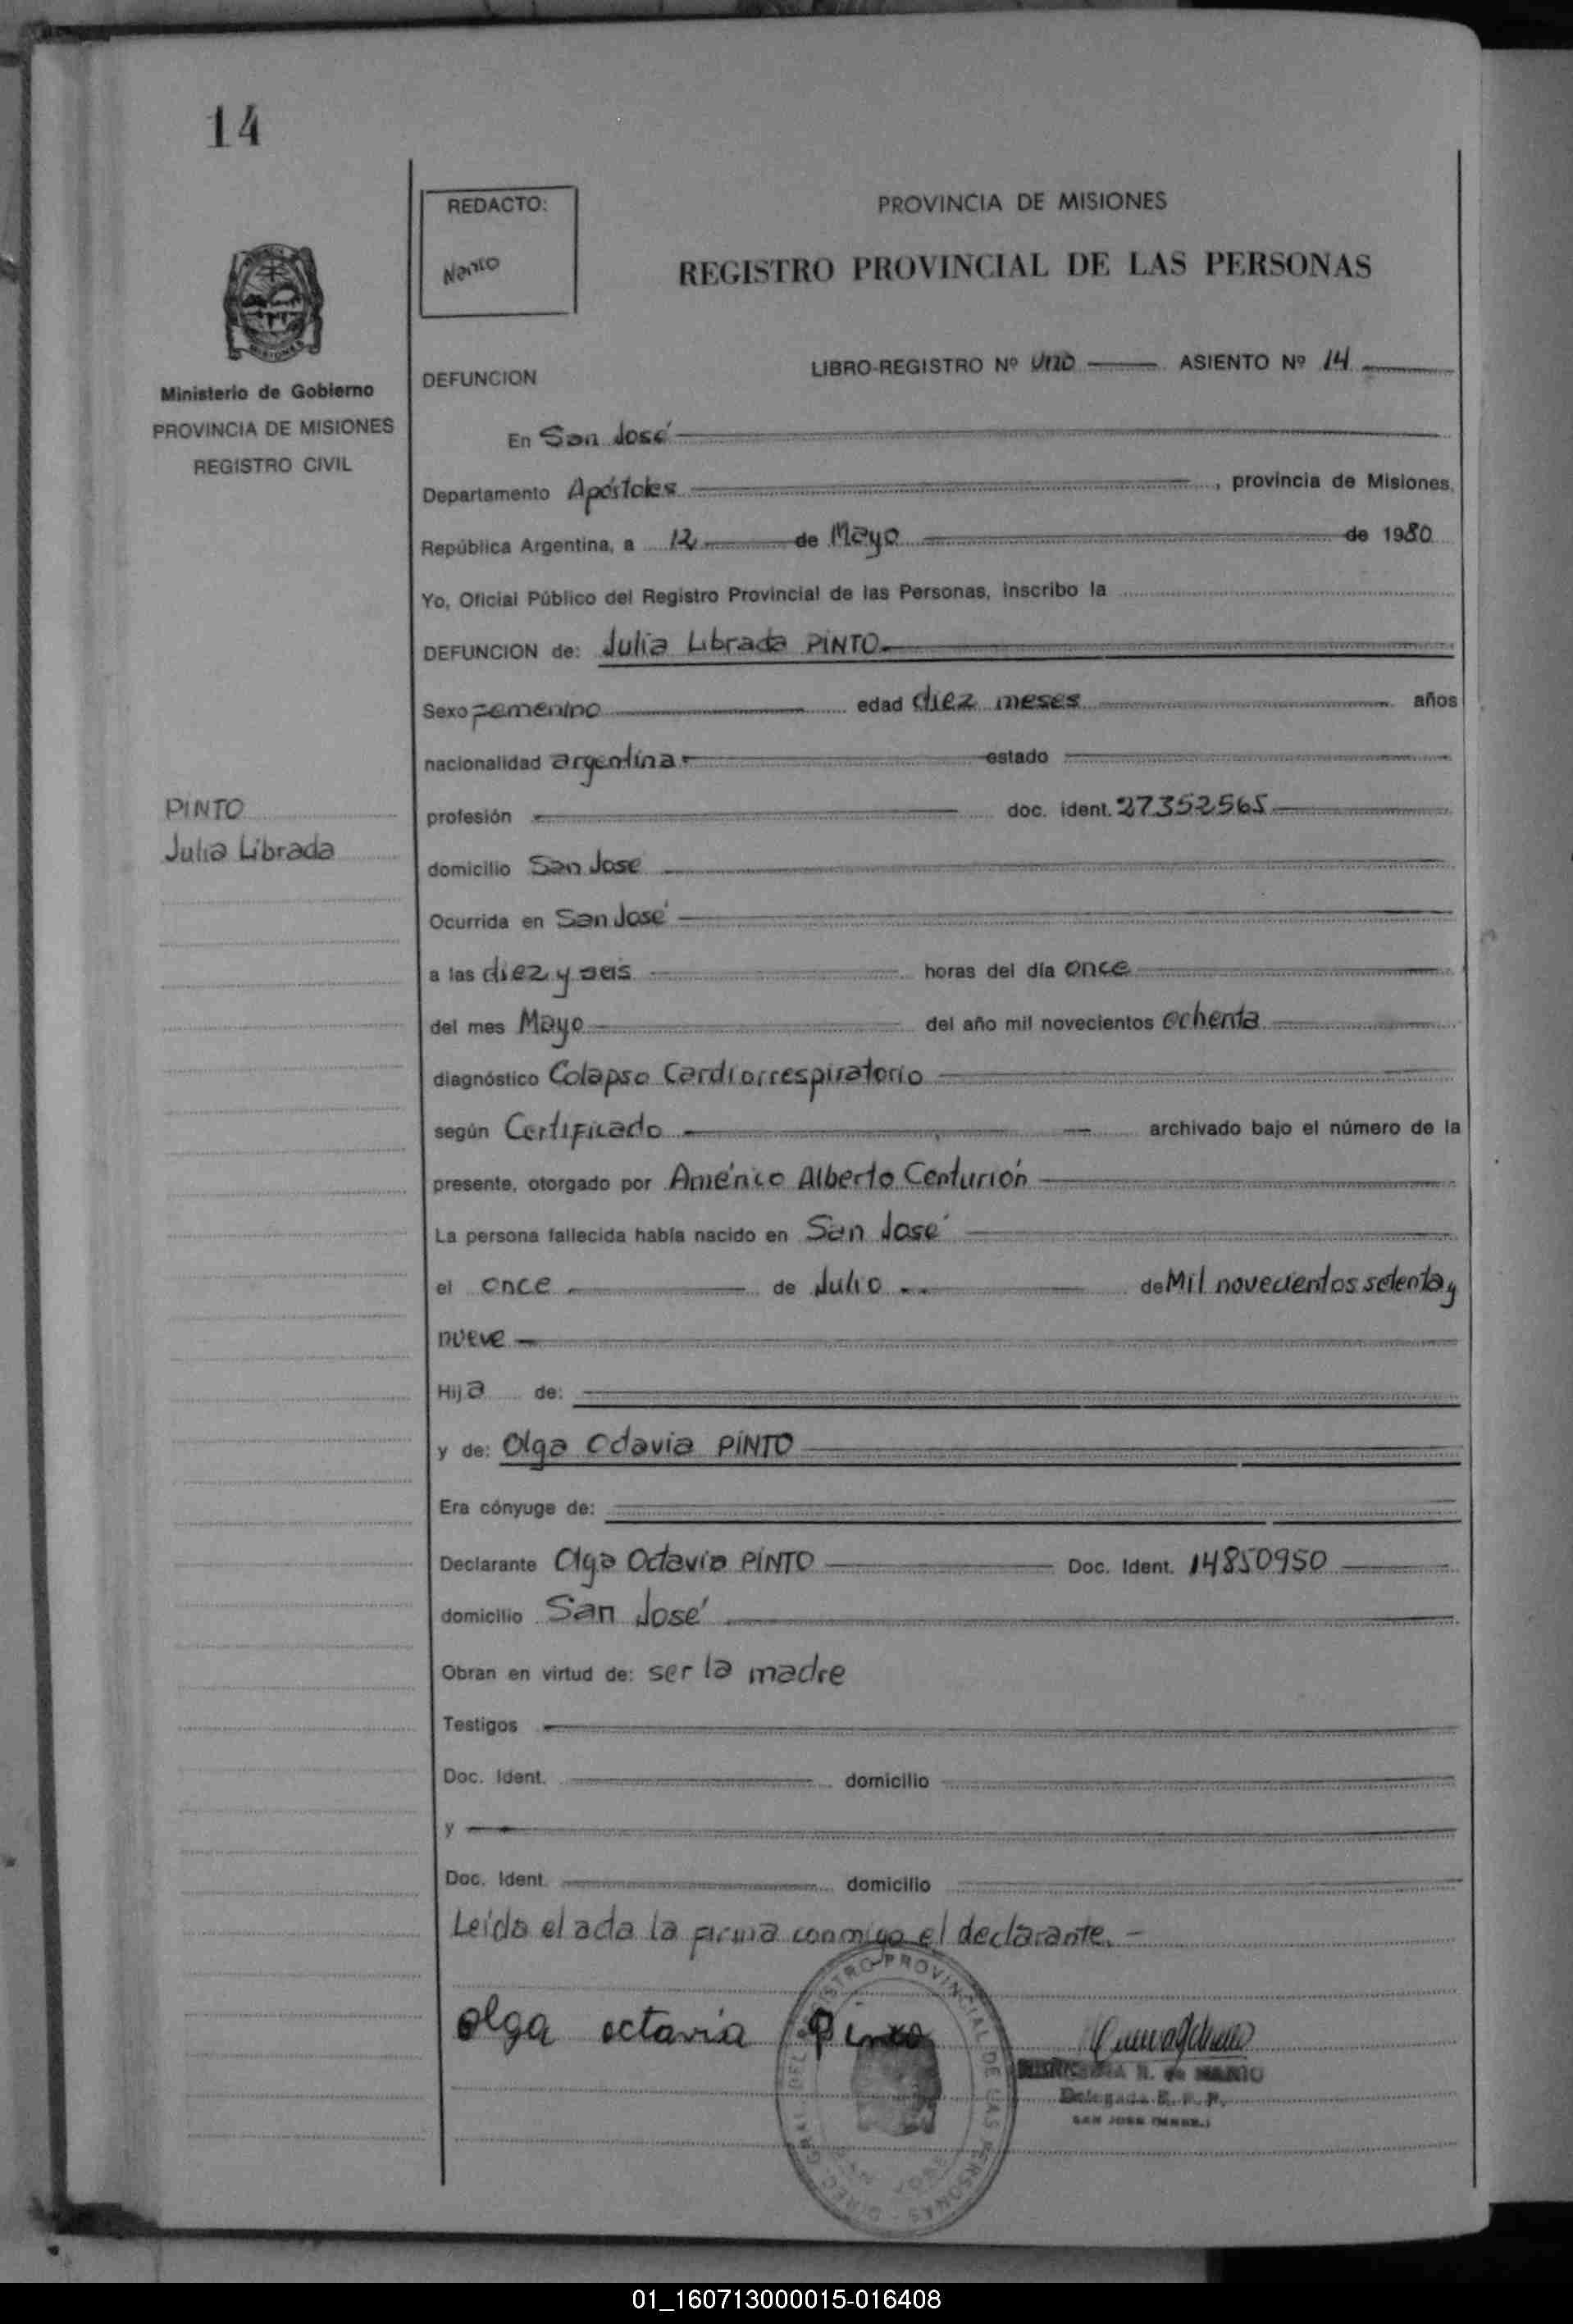 14
REDACTO:
PROVINCIA DE MISIONES
REGISTRO PROVINCIAL DE LAS PERSONAS
MISIONES
Ministerio de Gobierno
PROVINCIA DE MISIONES
REGISTRO CIVIL
LIBRO-REGISTRO Nº uno ASIENTO Nº 14
DEFUNCION
En San José
Departamento Apóstoles, provincia de Misiones,
República Argentina, a 12 de Mayo de 1980
Yo, Oficial Público del Registro Provincial de las Personas, inscribo la
DEFUNCION de: Julia Librada PINTO
Sexo Femenino edad diez meses años
nacionalidad argentina estado
PINTO
Julia Librada
profesión doc. ident. 27352565
domicilio San Jose
Ocurrida en San José
a las diez y seis horas del día once
del mes Mayo del año mil novecientos ochenta
diagnóstico Colapso Cardiorrespiratorio
según Certificado archivado bajo el número de la
presente, otorgado por Américo Alberto Centurión
La persona fallecida había nacido en San José
el once de Julio de Mil novecientos setenta y
nueve
Hija de:
y de: Olga Octavia PINTO
Era cónyuge de:
Declarante Olga Octavia PINTO Doc. Ident. 14850950
domicilio San José
Obran en virtud de: ser la madre
Testigos
Doc. Ident. domicilio
y
Doc. Ident. domicilio
Leída el acta la firma conmigo el declarante.-
olga octavia Pinto
DIREC. GRAL. DEL REGISTRO PROVINCIAL DE LAS PERSONAS
SAN JOSE
R. de
Delegada R. P. P.
SAN JOSE (MNES.)
01_160713000015-016408